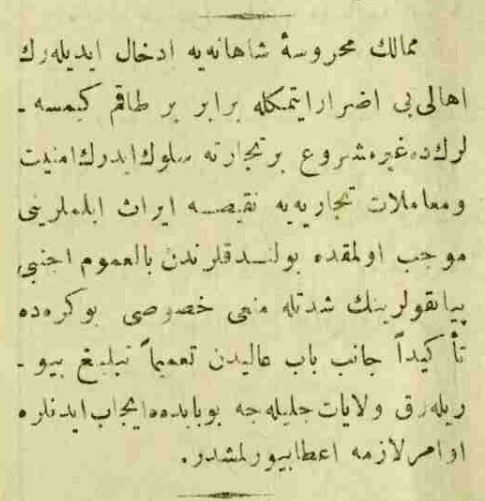 ممالك محروسهٔ شاهانه‌یه ادخال ایدیله‌رك
اهالی‌یی اضرار ایتمكله برابر بر طاقم كیمسه ـ
لرك ده غیر مشروع بر تجارته سلوك ایدرك امنیت
و معاملات تجاریه‌یه نقیصه ایراث ایلملرینی
موجب اولمقده بولندقلرندن بالعموم اجنبی
پیانقولرینك شدتله منعی خصوصی بو كره ده
تأكیداً جانب باب عالیدن تعمیماً تبلیغ بیو ـ
ریله‌رق ولایات جلیله‌جه بوبابده ایجاب ایدنلره
اوامر لازمه اعطا بیورلمشدر.